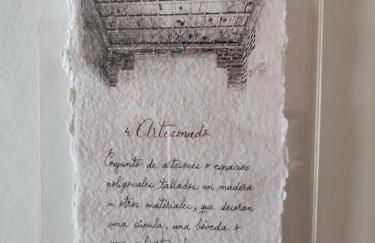 4 Artesonado
Conjunto de artesones o espacios
poligonales tallados en madera
u otros materiales, que decoran
una cúpula, una bóveda o
una